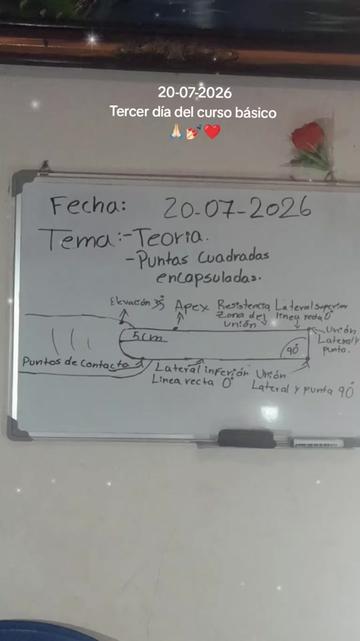 20-07-2026
Tercer día del curso básico
🙏🏻💅🏻❤️
Fecha: 20-07-2026
Tema:-Teoria.
-Puntas Cuadradas
encapsuladas.
Elevación 35°
Apex
Resistencia
Zona de
unión
Lateral superior
linea recta 0°
5cm
90°
Unión
Lateral y
punta.
Puntos de contacto
Lateral inferión
Linea recta 0°
Unión
Lateral y punta 90°